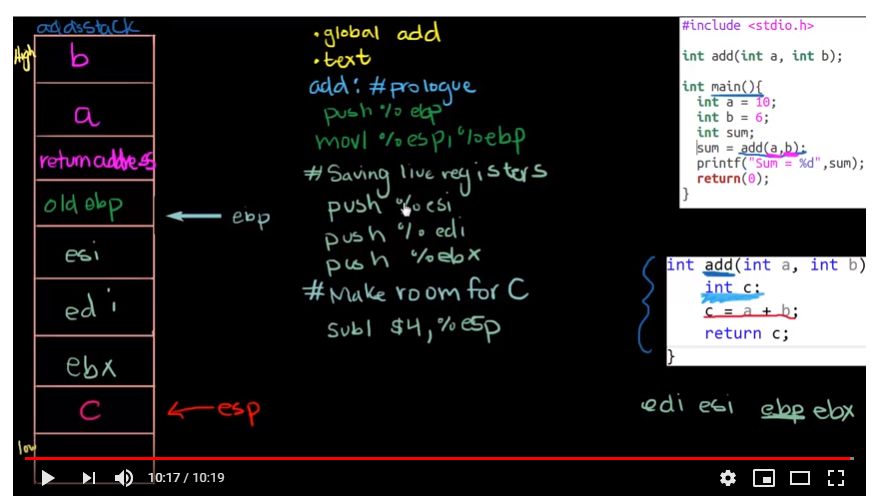 add's stack
High
b
a
return address
old ebp
ebp
esi
edi
ebx
c
esp
low
.global add
.text
add: #prologue
push %ebp
movl %esp, %ebp
#Saving live registers
push %esi
push %edi
push %ebx
#Make room for C
subl $4, %esp
#include <stdio.h>
int add(int a, int b);
int main(){
int a = 10;
int b = 6;
int sum;
sum = add(a,b);
printf("Sum = %d",sum);
return(0);
}
int add(int a, int b)
int c;
c = a + b;
return c;
}
edi esi ebp ebx
10:17 / 10:19